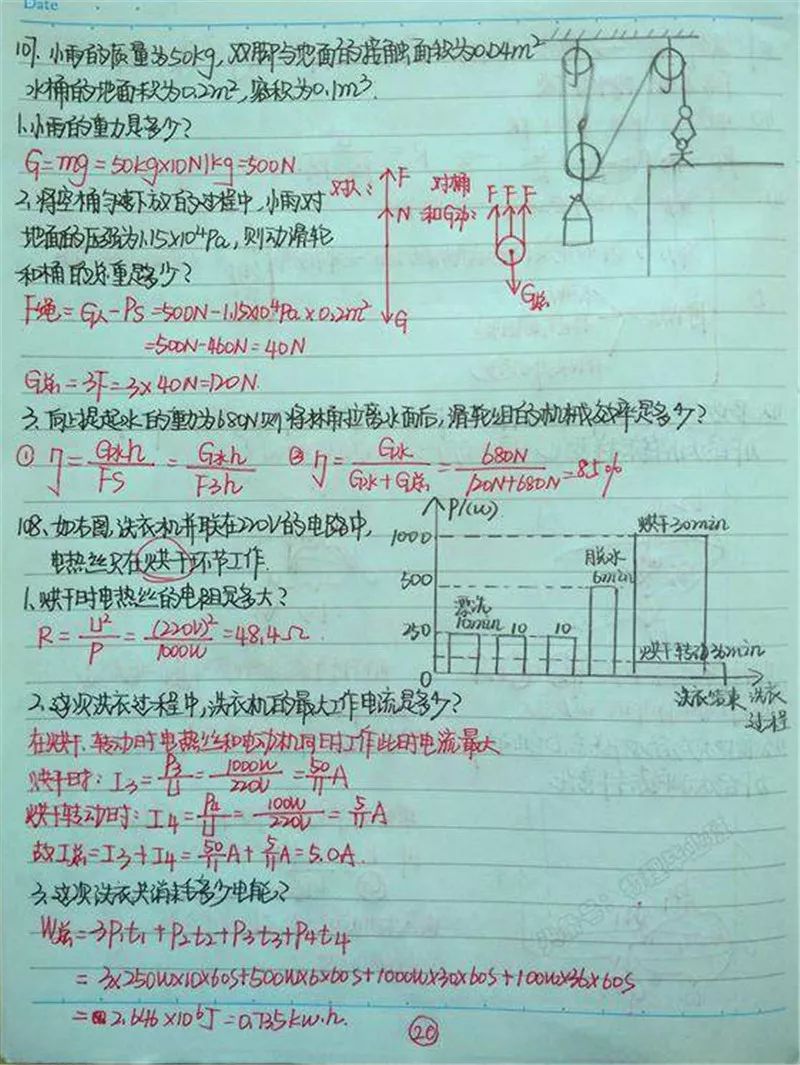 Date
107. 小雨的质量为50kg, 双脚与地面的接触面积为0.04m²
水桶的地面积为0.2m², 容积为0.1m³.
1.小雨的重力是多少?
G=mg=50kg×10N/kg=500N
2.将空桶匀速下放的过程中,小雨对
地面的压强为1.15×10⁴Pa,则动滑轮
和桶的总重是多少?
对人: F N G
对桶和G动: F F F G总
F绳=G人-PS=500N-1.15×10⁴Pa×0.2m²
=500N-460N=40N
G总=3F=3×40N=120N
3.向上提起水的重力为680N时将水桶拉离水面后,滑轮组的机械效率是多少?
① η=G水h/FS=G水h/F3h ② η=G水/G水+G总=680N/120N+680N=85%
108、如右图,洗衣机并联在220V的电路中,
电热丝只在烘干环节工作.
1.烘干时电热丝的电阻是多大?
R=U²/P=(220V)²/1000W=48.4Ω
P/(W)
1000
500
250
0
漂洗
10min
10
10
脱水
6min
烘干30min
烘干转动36min
洗衣结束
洗衣过程
2.这次洗衣过程中,洗衣机的最大工作电流是多少?
在烘干、转动时电热丝和电动机同时工作此时电流最大
烘干时: I3=P3/U=1000W/220V=50/11A
烘干转动时: I4=P4/U=100W/220V=5/11A
故I总=I3+I4=50/11A+5/11A=5.0A.
3.这次洗衣共消耗多少电能?
W总=3P1t1+P2t2+P3t3+P4t4
=3×250W×10×60s+500W×6×60s+1000W×30×60s+100W×36×60s
=2.646×10⁶J=0.735kw.h.
20